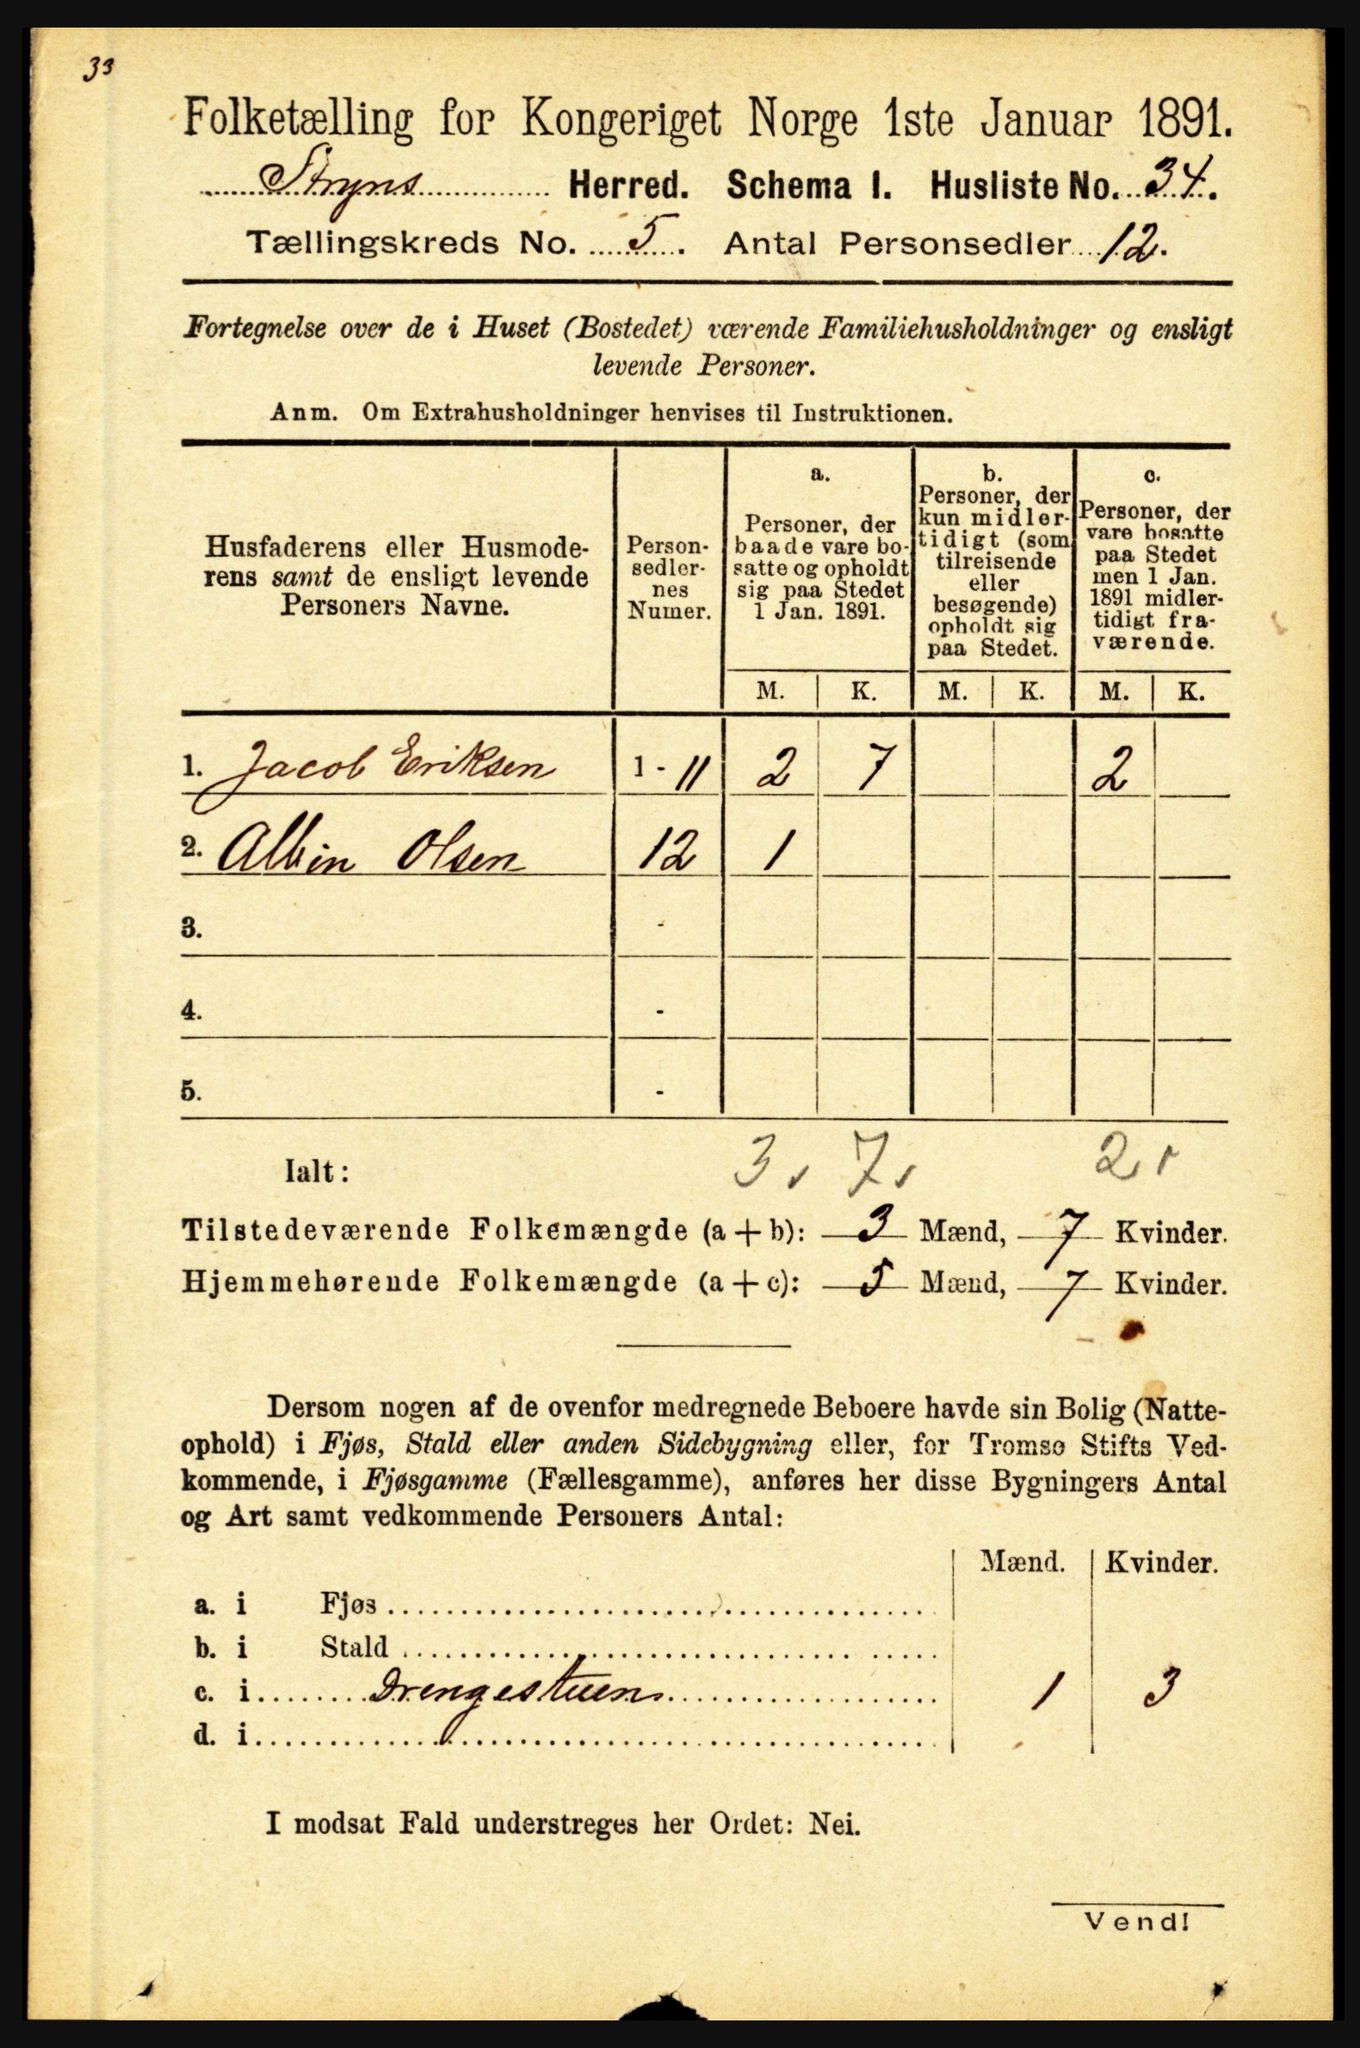 33
Folketælling for Kongeriget Norge 1ste Januar 1891.
Stryns Herred. Schema I. Husliste No. 34.
Tællingskreds No. 5. Antal Personsedler 12.
Fortegnelse over de i Huset (Bostedet) værende Familiehusholdninger og ensligt
levende Personer.
Anm. Om Extrahusholdninger henvises til Instruktionen.
Husfaderens eller Husmode-
rens samt de ensligt levende
Personers Navne.
Person-
sedler-
nes
Numer.
a.
Personer, der
baade vare bo-
satte og opholdt
sig paa Stedet
1 Jan. 1891.
b.
Personer, der
kun midler-
tidigt (som
tilreisende
eller
besøgende)
opholdt sig
paa Stedet.
c.
Personer, der
vare bosatte
paa Stedet
men 1 Jan.
1891 midler-
tidigt fra-
værende.
M. K. M. K. M. K.
1. Jacob Eriksen 1 - 11 2 7 2
2. Albin Olsen 12 1
3. -
4. -
5. -
Ialt: 3 7 2
Tilstedeværende Folkemængde (a + b): 3 Mænd, 7 Kvinder.
Hjemmehørende Folkemængde (a + c): 5 Mænd, 7 Kvinder.
Dersom nogen af de ovenfor medregnede Beboere havde sin Bolig (Natte-
ophold) i Fjøs, Stald eller anden Sidebygning eller, for Tromsø Stifts Ved-
kommende, i Fjøsgamme (Fællesgamme), anføres her disse Bygningers Antal
og Art samt vedkommende Personers Antal:
Mænd. Kvinder.
a. i Fjøs
b. i Stald
c. i Drengestuen 1 3
d. i
I modsat Fald understreges her Ordet: Nei.
Vend!